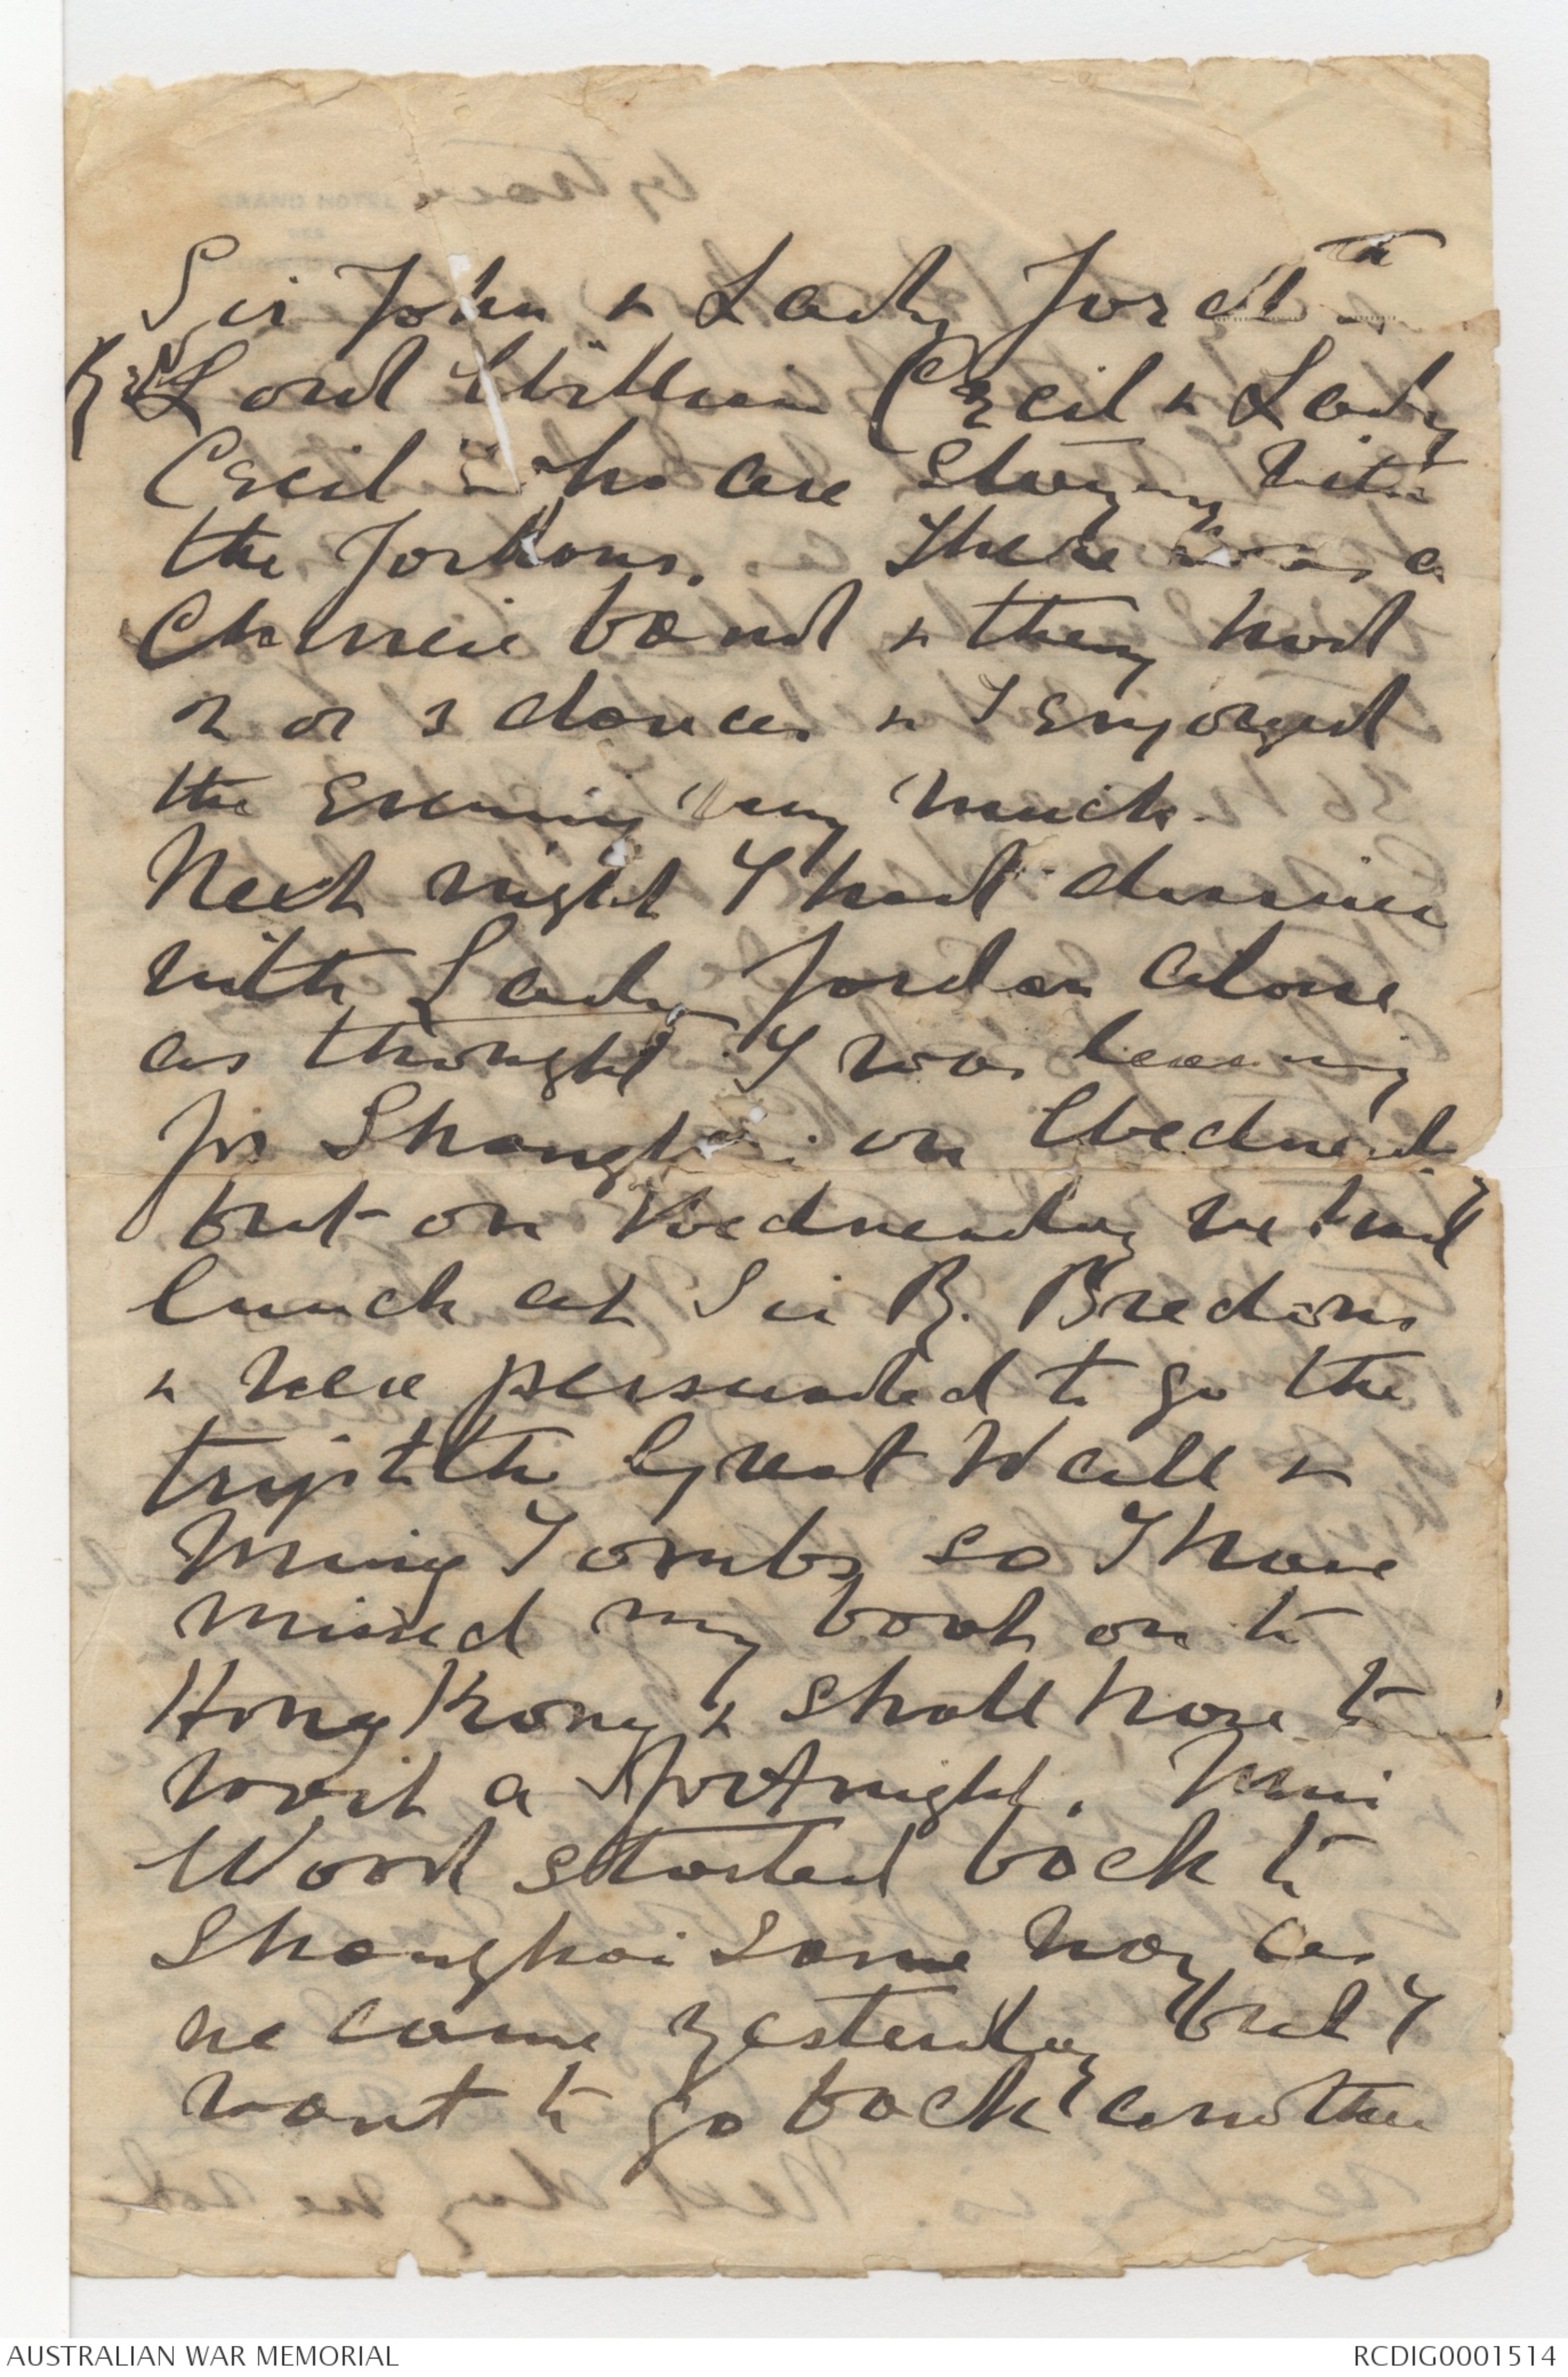 Sir John & Lady Jordan
Lord William Cecil & Lady
Cecil who are staying with
the Jordans. There was a
Chinese band & they had
2 or 3 dances & I enjoyed
the evening very much.
Next night I had dinner
with Lady Jordan alone
as thought I was leaving
for Shanghai on Wednesday
but on Wednesday we had
lunch at Sir R. Bredons
& were persuaded to go the
trip to the Great Wall &
Ming Tombs so I have
missed my boat on to
Hong Kong & shall have to
wait a fortnight. Miss
Wood started back to
Shanghai same way as
we came yesterday but I
want to go back another
AUSTRALIAN WAR MEMORIAL
RCDIG0001514